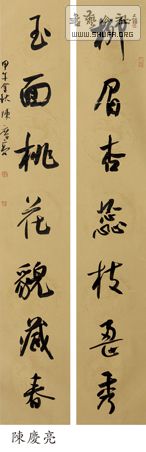 柳眉杏蕊枝秀
玉面桃花貌藏春
甲午金秋陳慶亮
WWW.SHUFA.ORG
陳慶亮